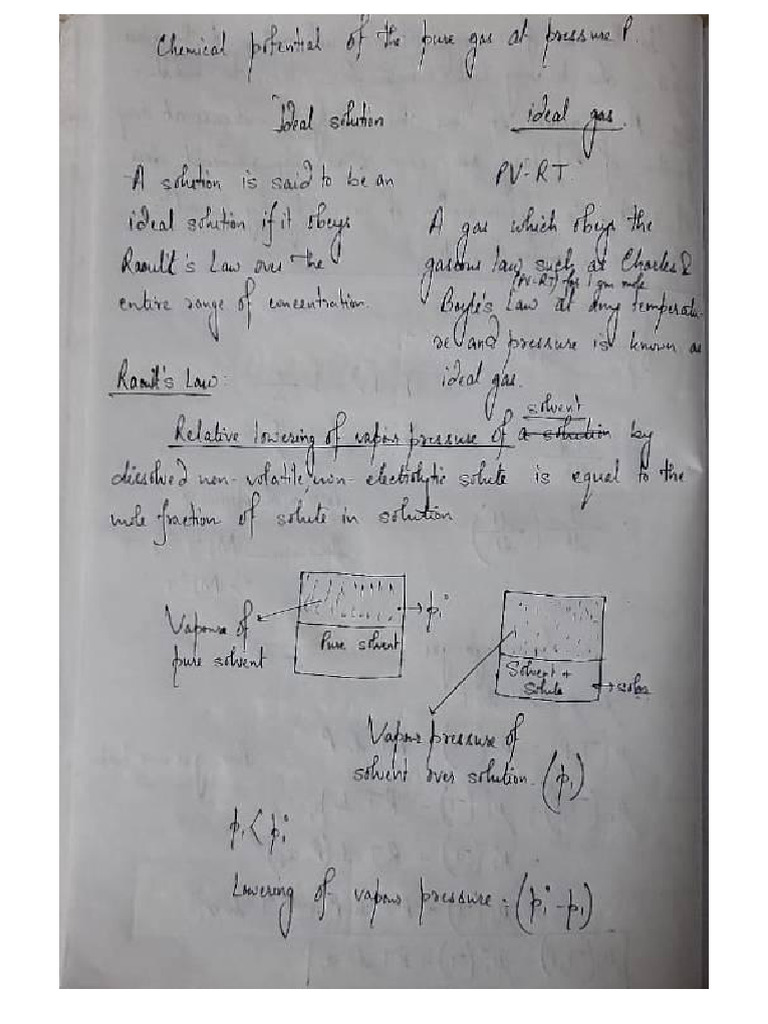 Chemical potential of the pure gas at pressure P.
Ideal solution
A solution is said to be an
ideal solution if it obeys
Raoult's Law over the
entire range of concentration.
ideal gas.
PV-RT
A gas which obeys the
gaseous law such as Charles &
(PV-RT) for 1 gm mole
Boyle's Law at any temperatu-
re and pressure is known as
ideal gas.
Raoult's Law:
solvent
Relative lowering of vapour pressure of a solution by
dissolved non-volatile, non-electrolytic solute is equal to the
mole fraction of solute in solution
Vapours of
pure solvent
Pure solvent
p₁°
Solvent +
Solute
Vapour pressure of
solvent over solution. (p₁)
p₁ < p₁°
Lowering of vapour pressure: (p₁° - p₁)